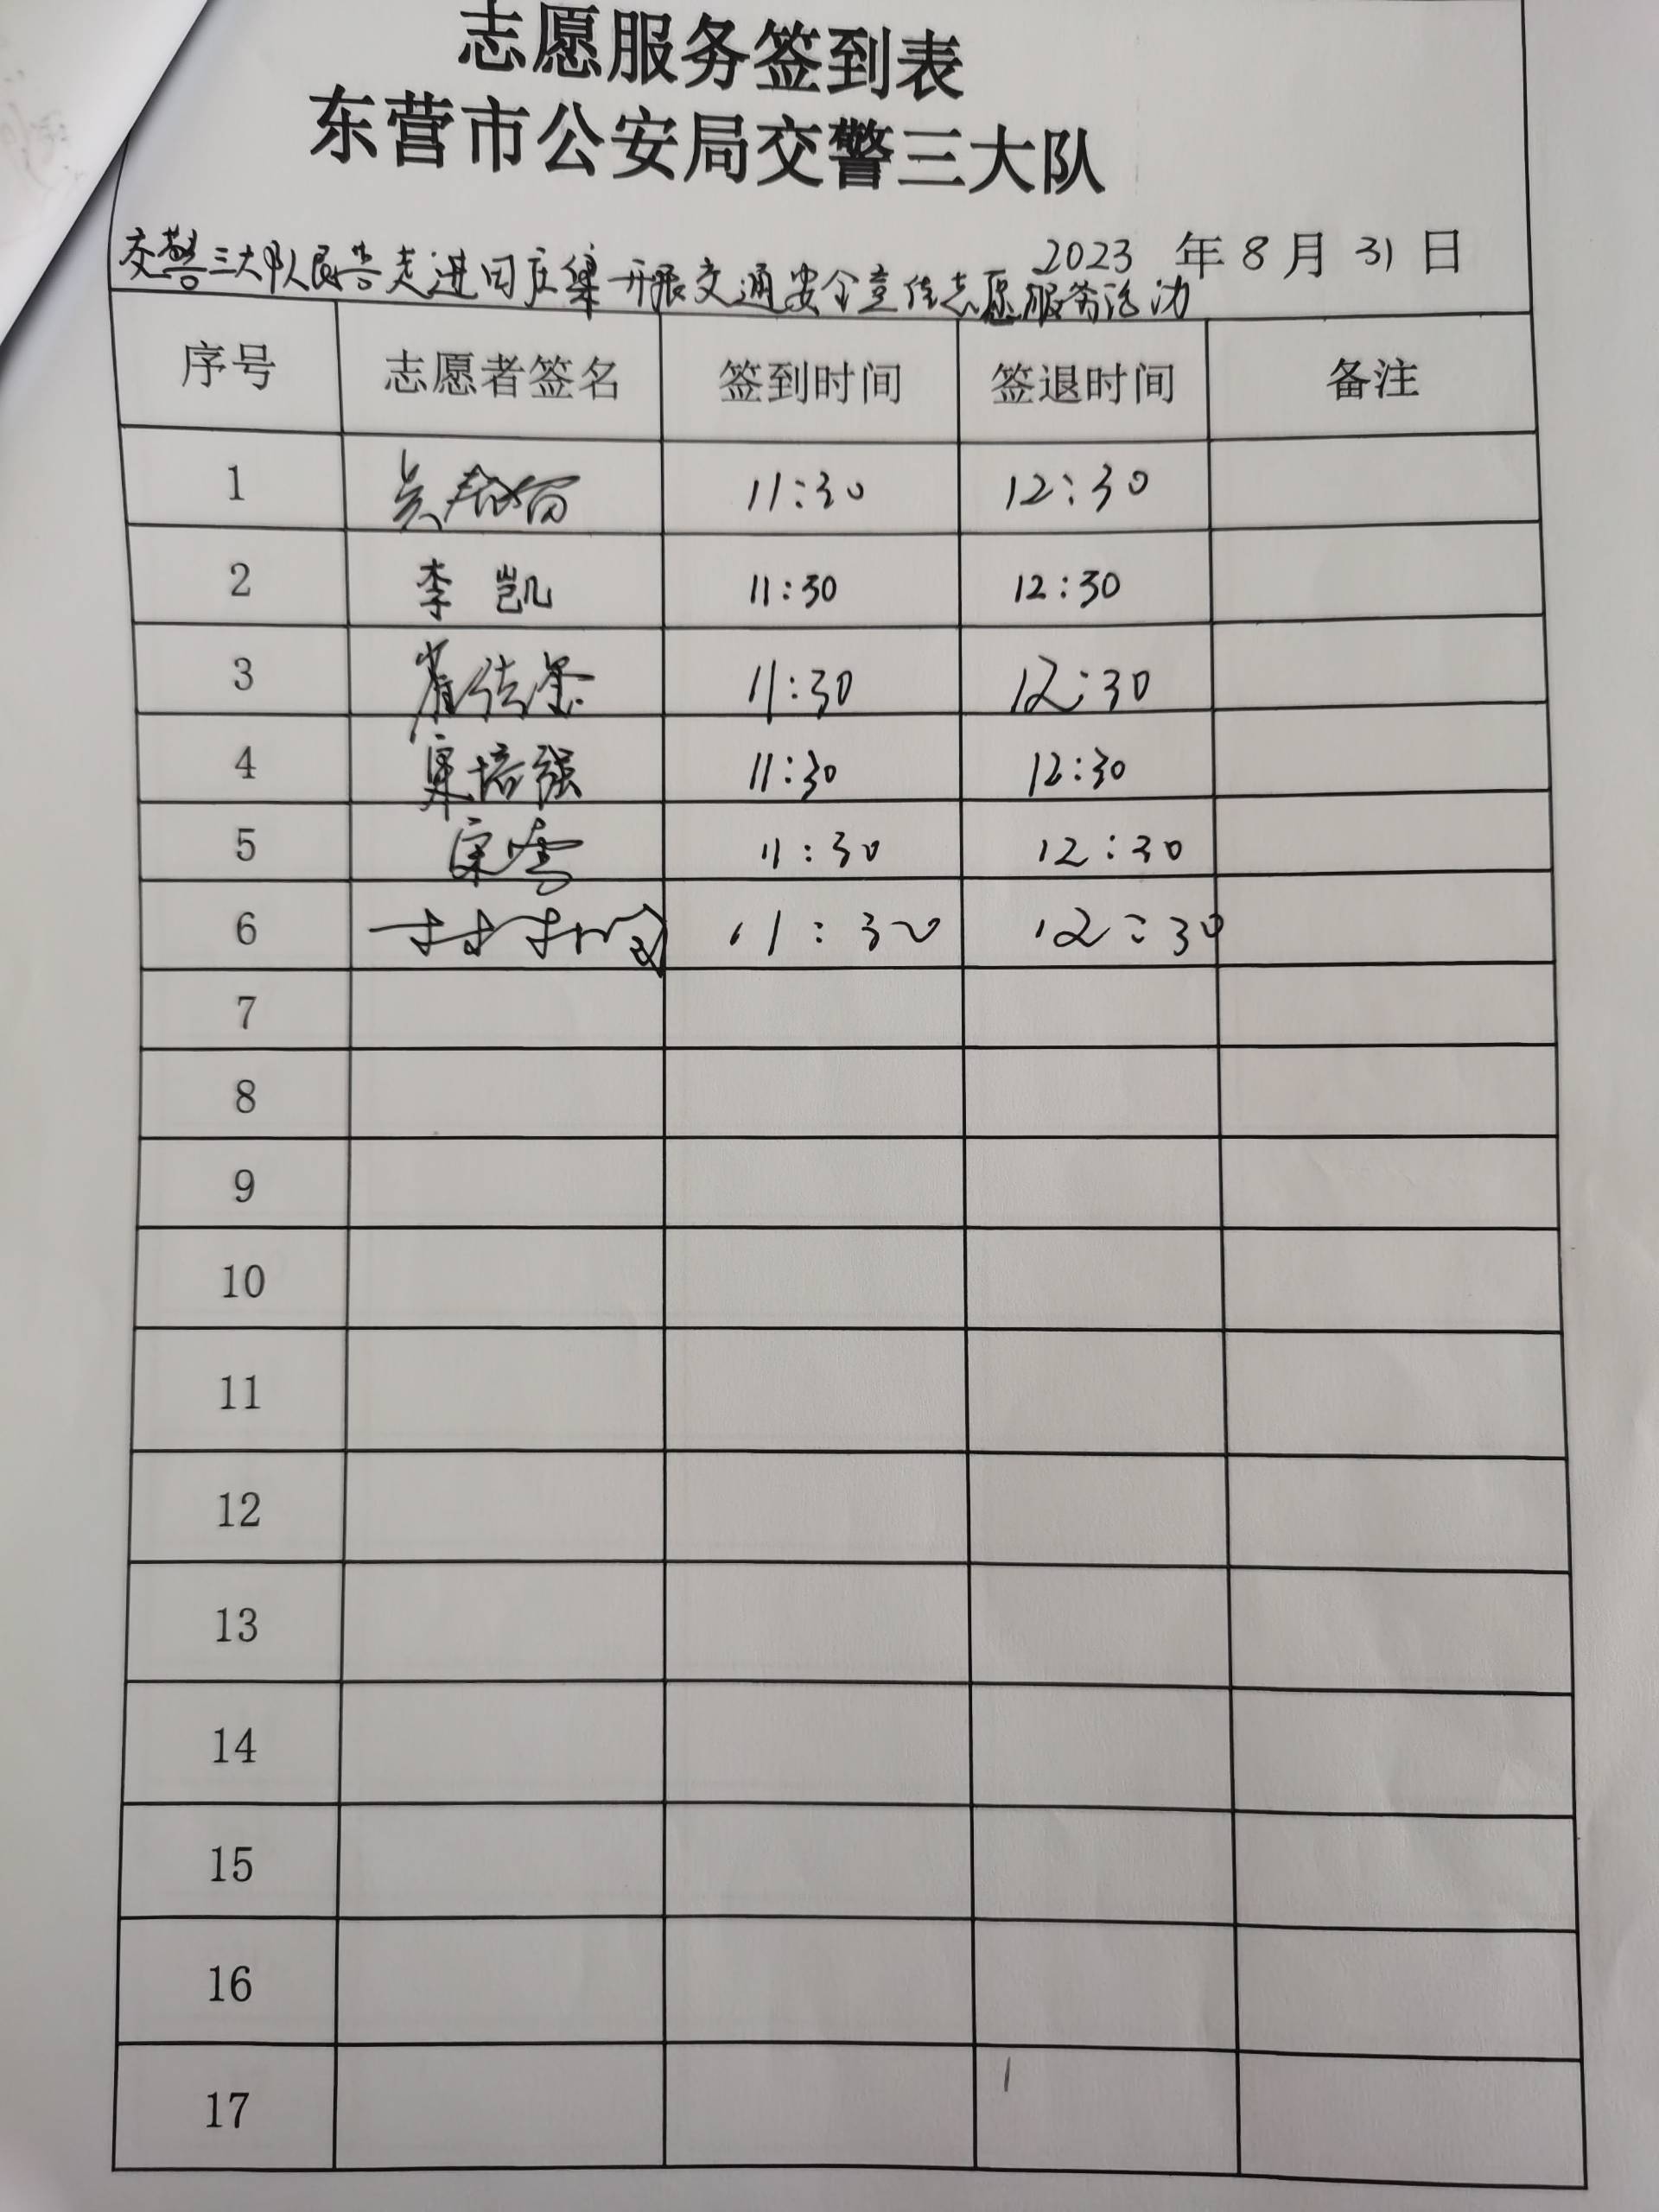 志愿服务签到表
东营市公安局交警三大队
2023 年 8 月 31 日
交警三大队民警走进田庄集开展交通安全宣传志愿服务活动
序号 志愿者签名 签到时间 签退时间 备注
1 吴 11:30 12:30
2 李凯 11:30 12:30
3 崔传 11:30 12:30
4 培强 11:30 12:30
5 11:30 12:30
6 11:30 12:30
7
8
9
10
11
12
13
14
15
16
17